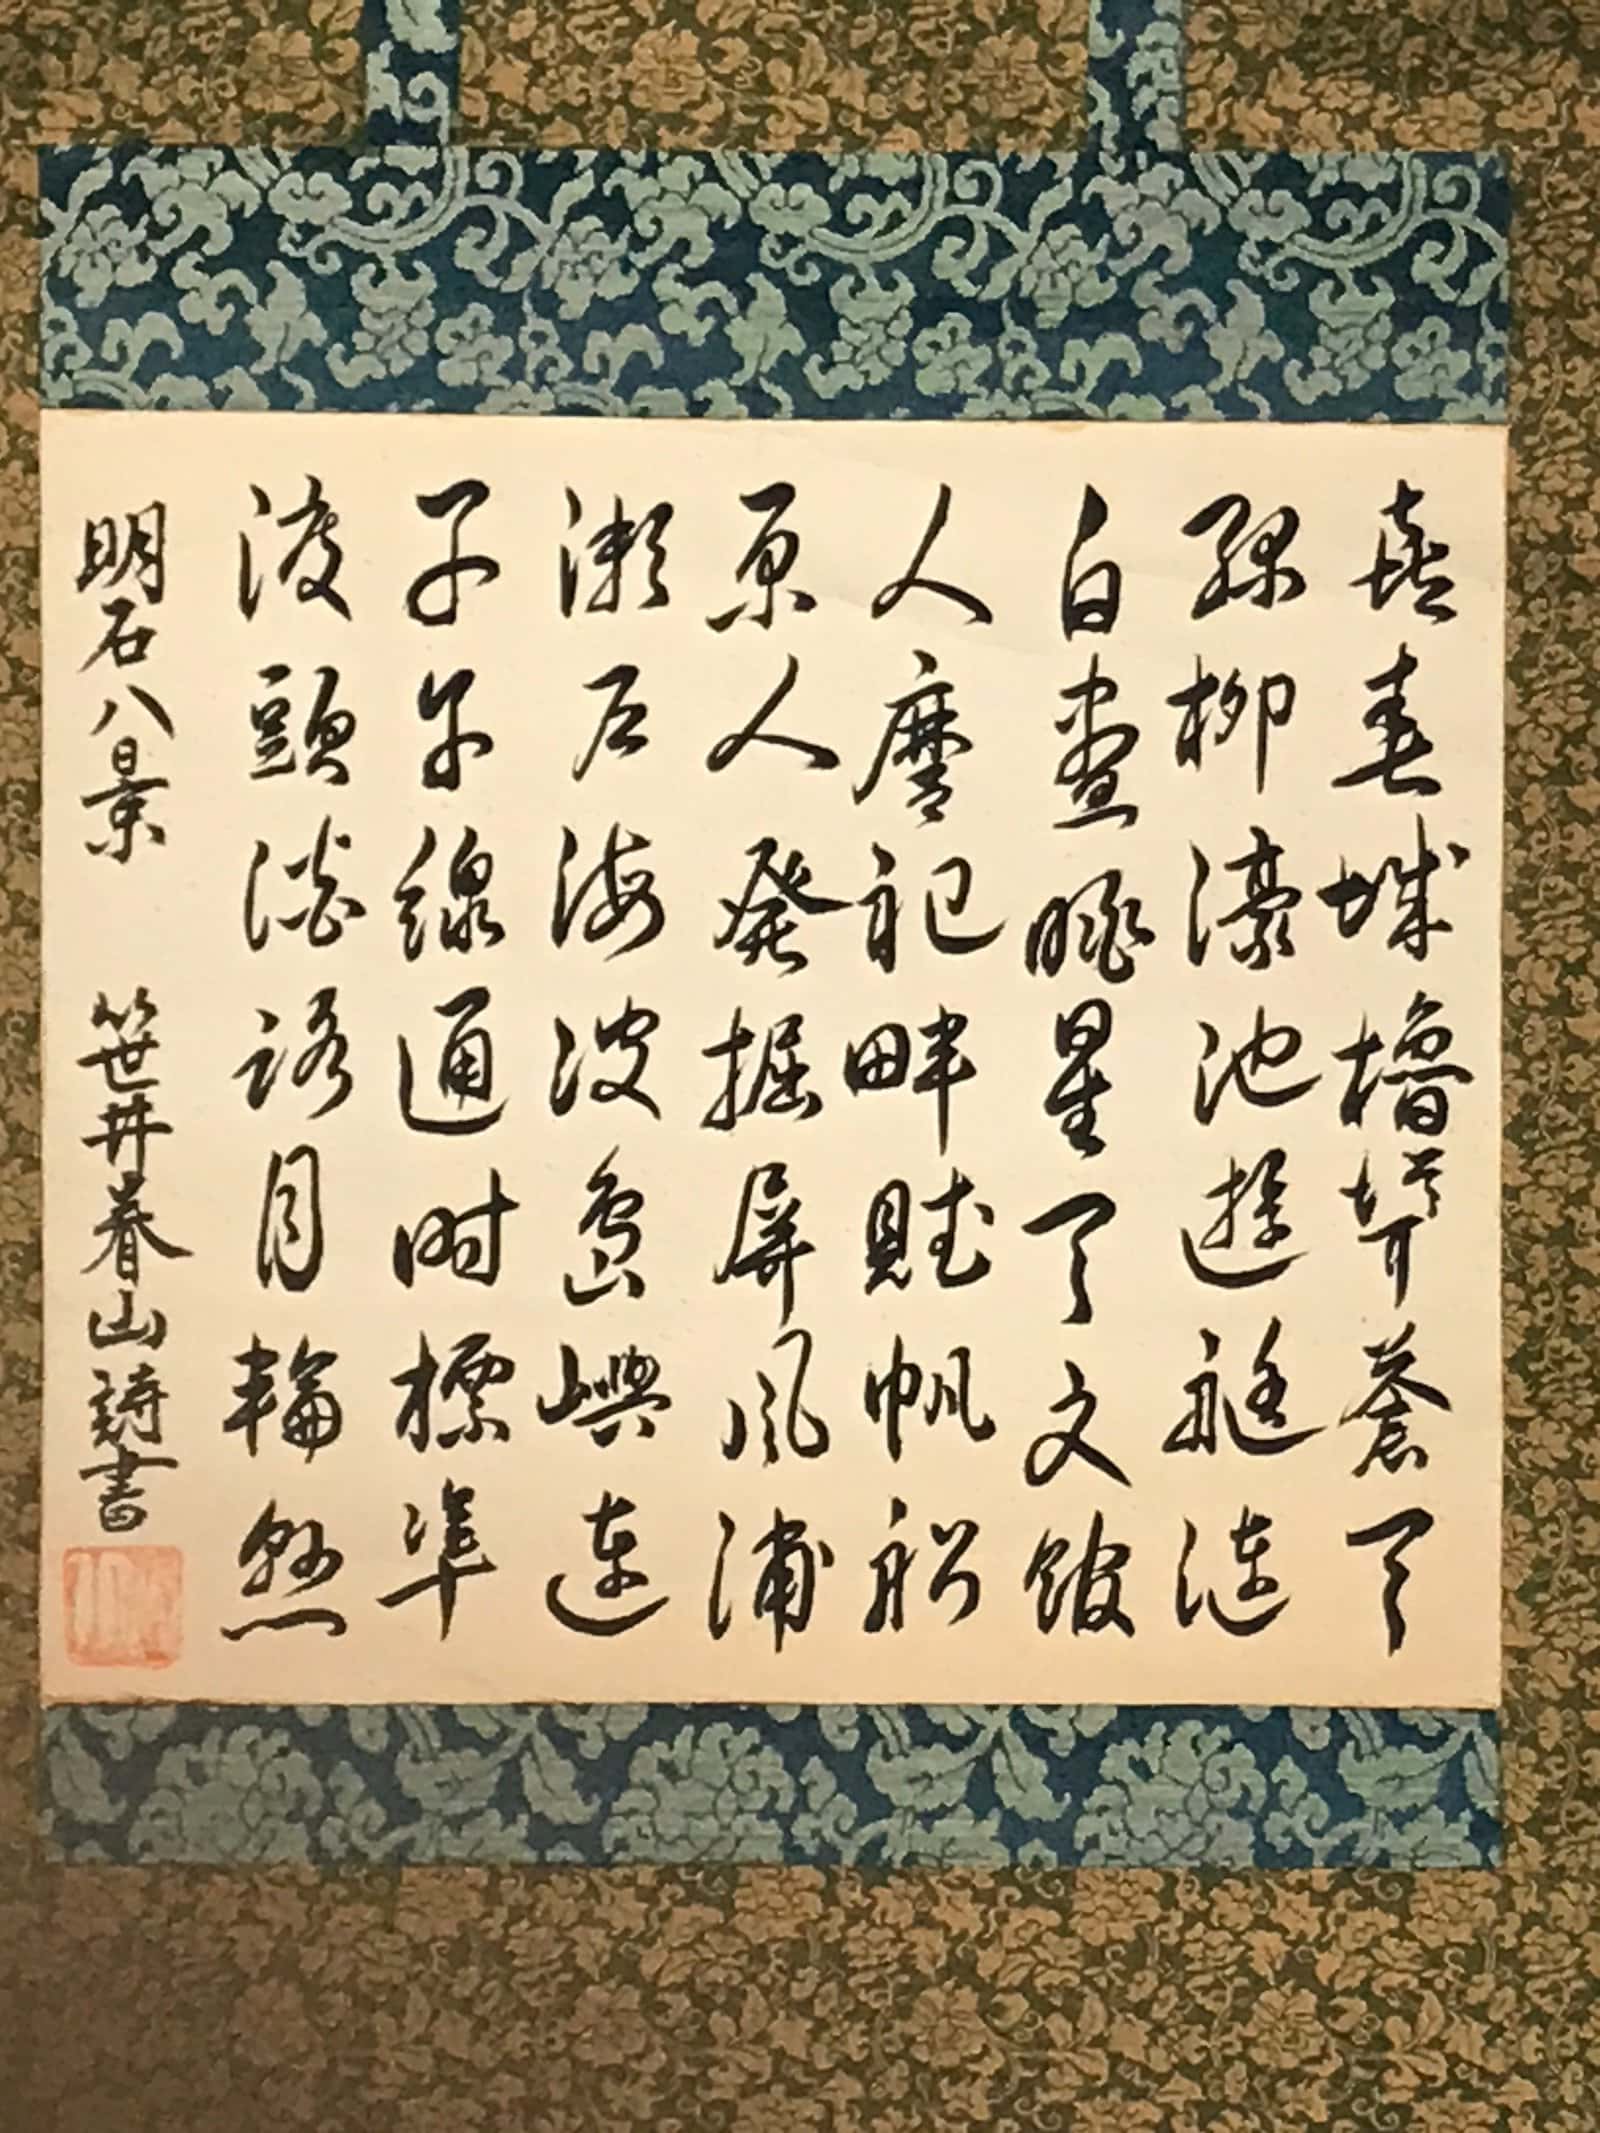 喜春城櫓聳蒼天
孫柳濠池遊艇漣
白晝眺星天文館
人麿祀畔賦帆船
原人発掘屏風浦
瀬戸海波島嶼連
子午線通時標準
渡頭淡路月輪懸
明石八景 笹井春山詩書